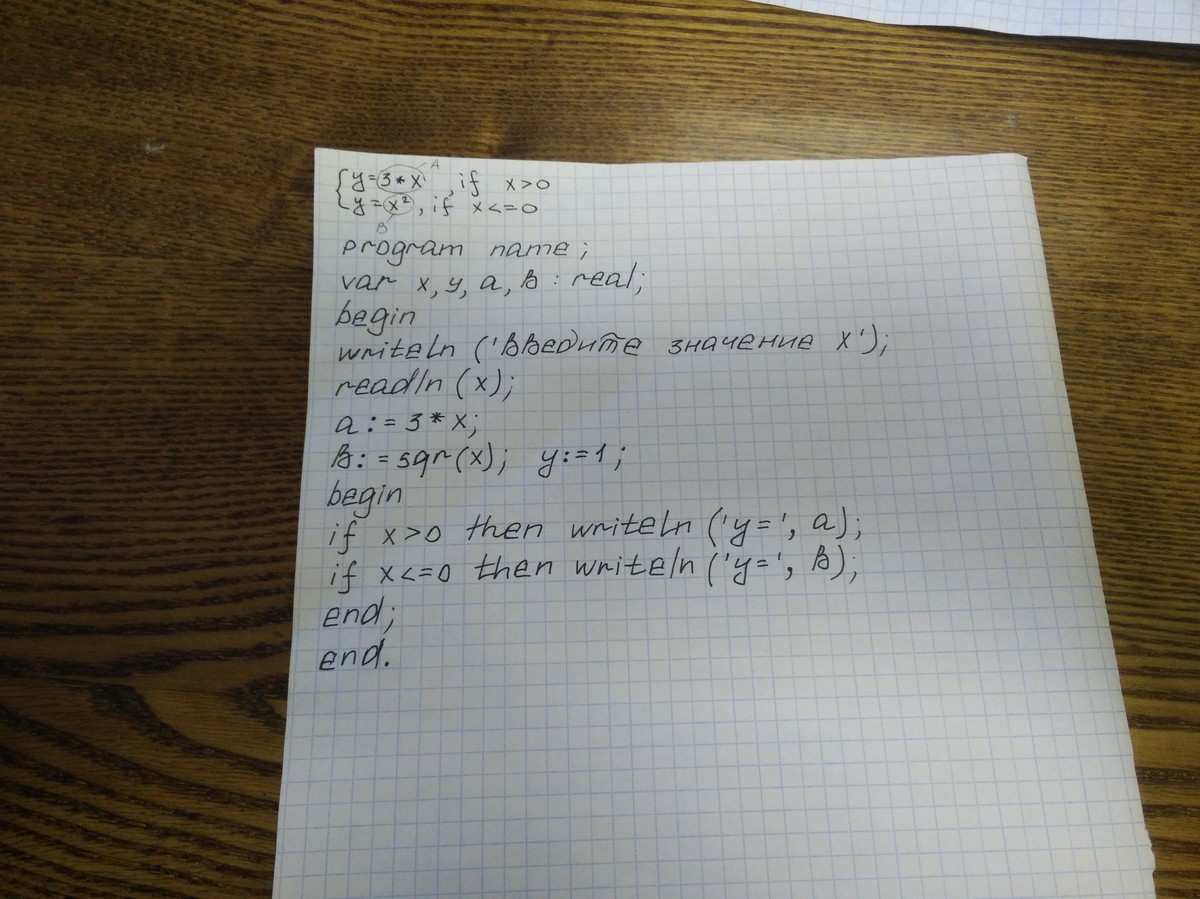 A
{ y=3*x, if x>0
y=x², if x<=0
B
program name;
var x, y, a, B: real;
begin
writeln ('Введите значение X');
readln (x);
a:=3*x;
B:=sqr(x); y:=1;
begin
if x>0 then writeln ('y=', a);
if x<=0 then writeln ('y=', B);
end;
end.